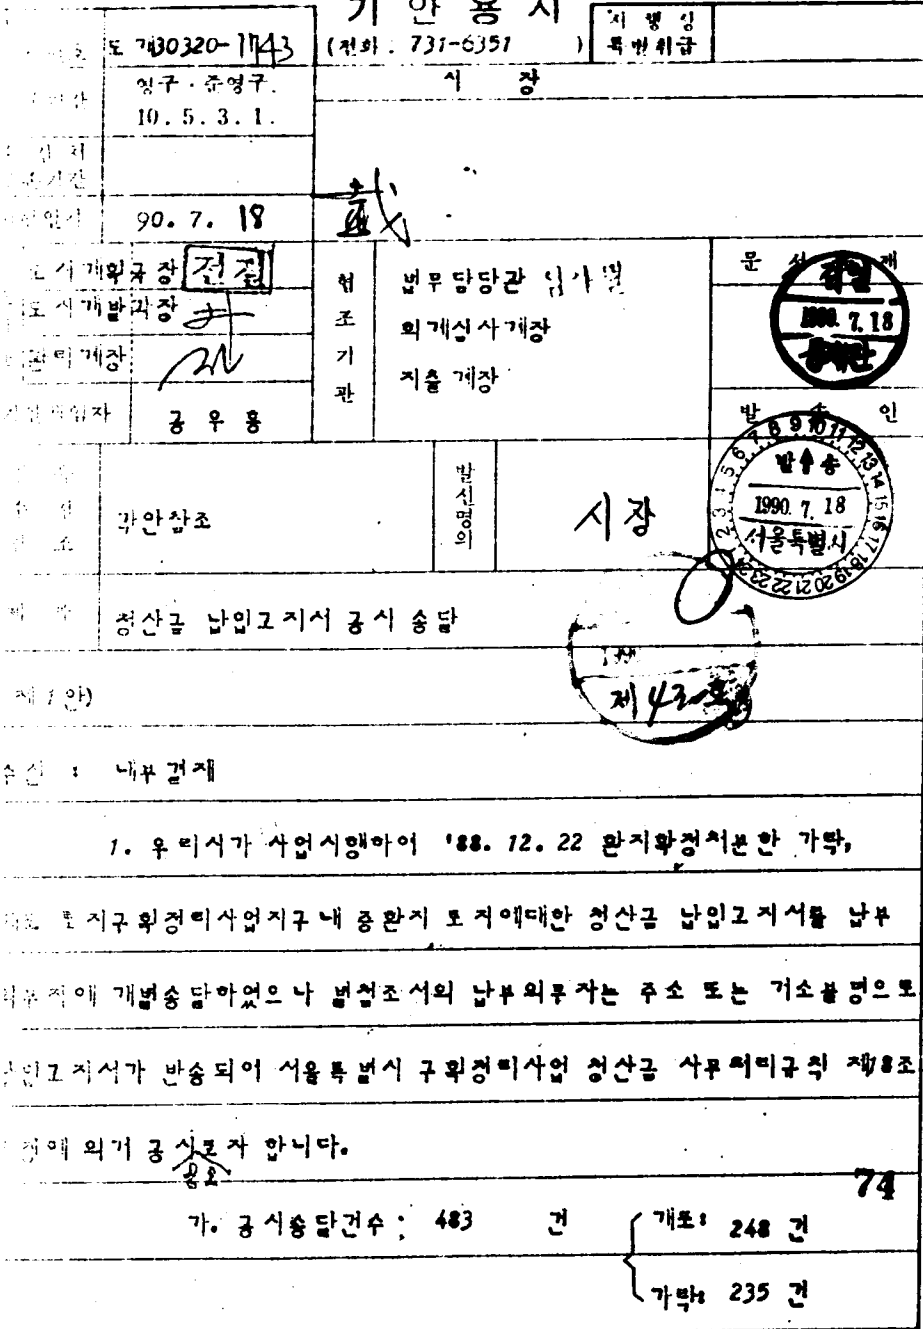 기안용지
(전화 : 731-6351 )
시행상
특별취급
도개30320-1743
영구·준영구.
10.5.3.1.
시 장
90. 7. 18
도시계획국장 전결
도시개발과장
관리계장
공우홍
협조기관
법무담당관
회계심사계장
지출계장
문서
1990. 7. 18
발송인
발송
1990. 7. 18
서울특별시
각안참조
발신명의
시장
청산금 납입고지서 공시 송달
제 43 호
제 1 안)
수신 : 내부결재
1. 우리시가 사업시행하여 '88. 12. 22 환지확정처분한 가락,
개포 토지구획정리사업지구내 증환지 토지에대한 청산금 납입고지서를 납부
의무자에 개별송달하였으나 별첨조서의 납부의무자는 주소 또는 거소불명으로
납입고지서가 반송되어 서울특별시 구획정리사업 청산금 사무처리규칙 제18조
규정에 의거 공시코자 합니다.
74
가. 공시송달건수 : 483 건
개포: 248 건
가락: 235 건